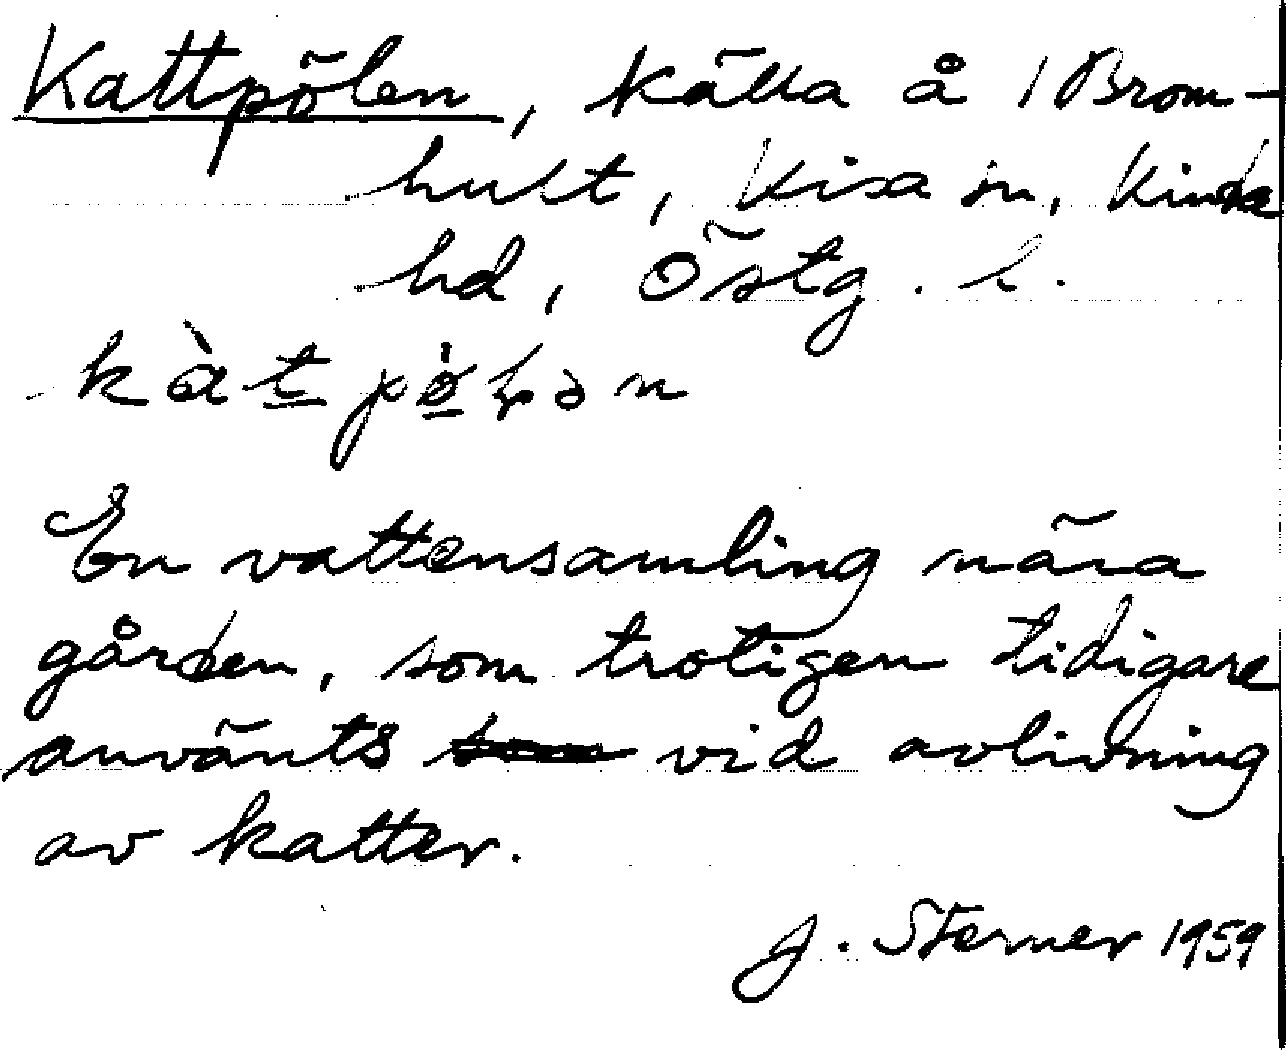 Kattpölen, källa å 1 Brom-
hult, Kisa sn, Kinda
hd, Östg. l.
kàt pø̀ɫən
En vattensamling nära
gården, som troligen tidigare
använts som vid avlivning
av katter.
J. Sterner 1959